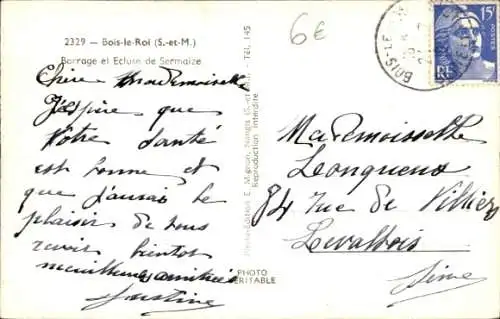 2329 — Bois-le-Roi (S.-et-M.)
Barrage et Ecluse de Sermaize
6€
15F
POSTES
RF
BOIS-LE
Chère Mademoiselle
J'espère que
Votre Santé
est bonne et
que j'aurai le
plaisir de vous
revoir bientôt
meilleures amitiés
Photo-Edition E. Mignon, Nangis (S.-et-M.) - Tél. 145
Reproduction Interdite
PHOTO
VERITABLE
Mademoiselle
Longueux
84 rue de Villiers
Levallois
Seine